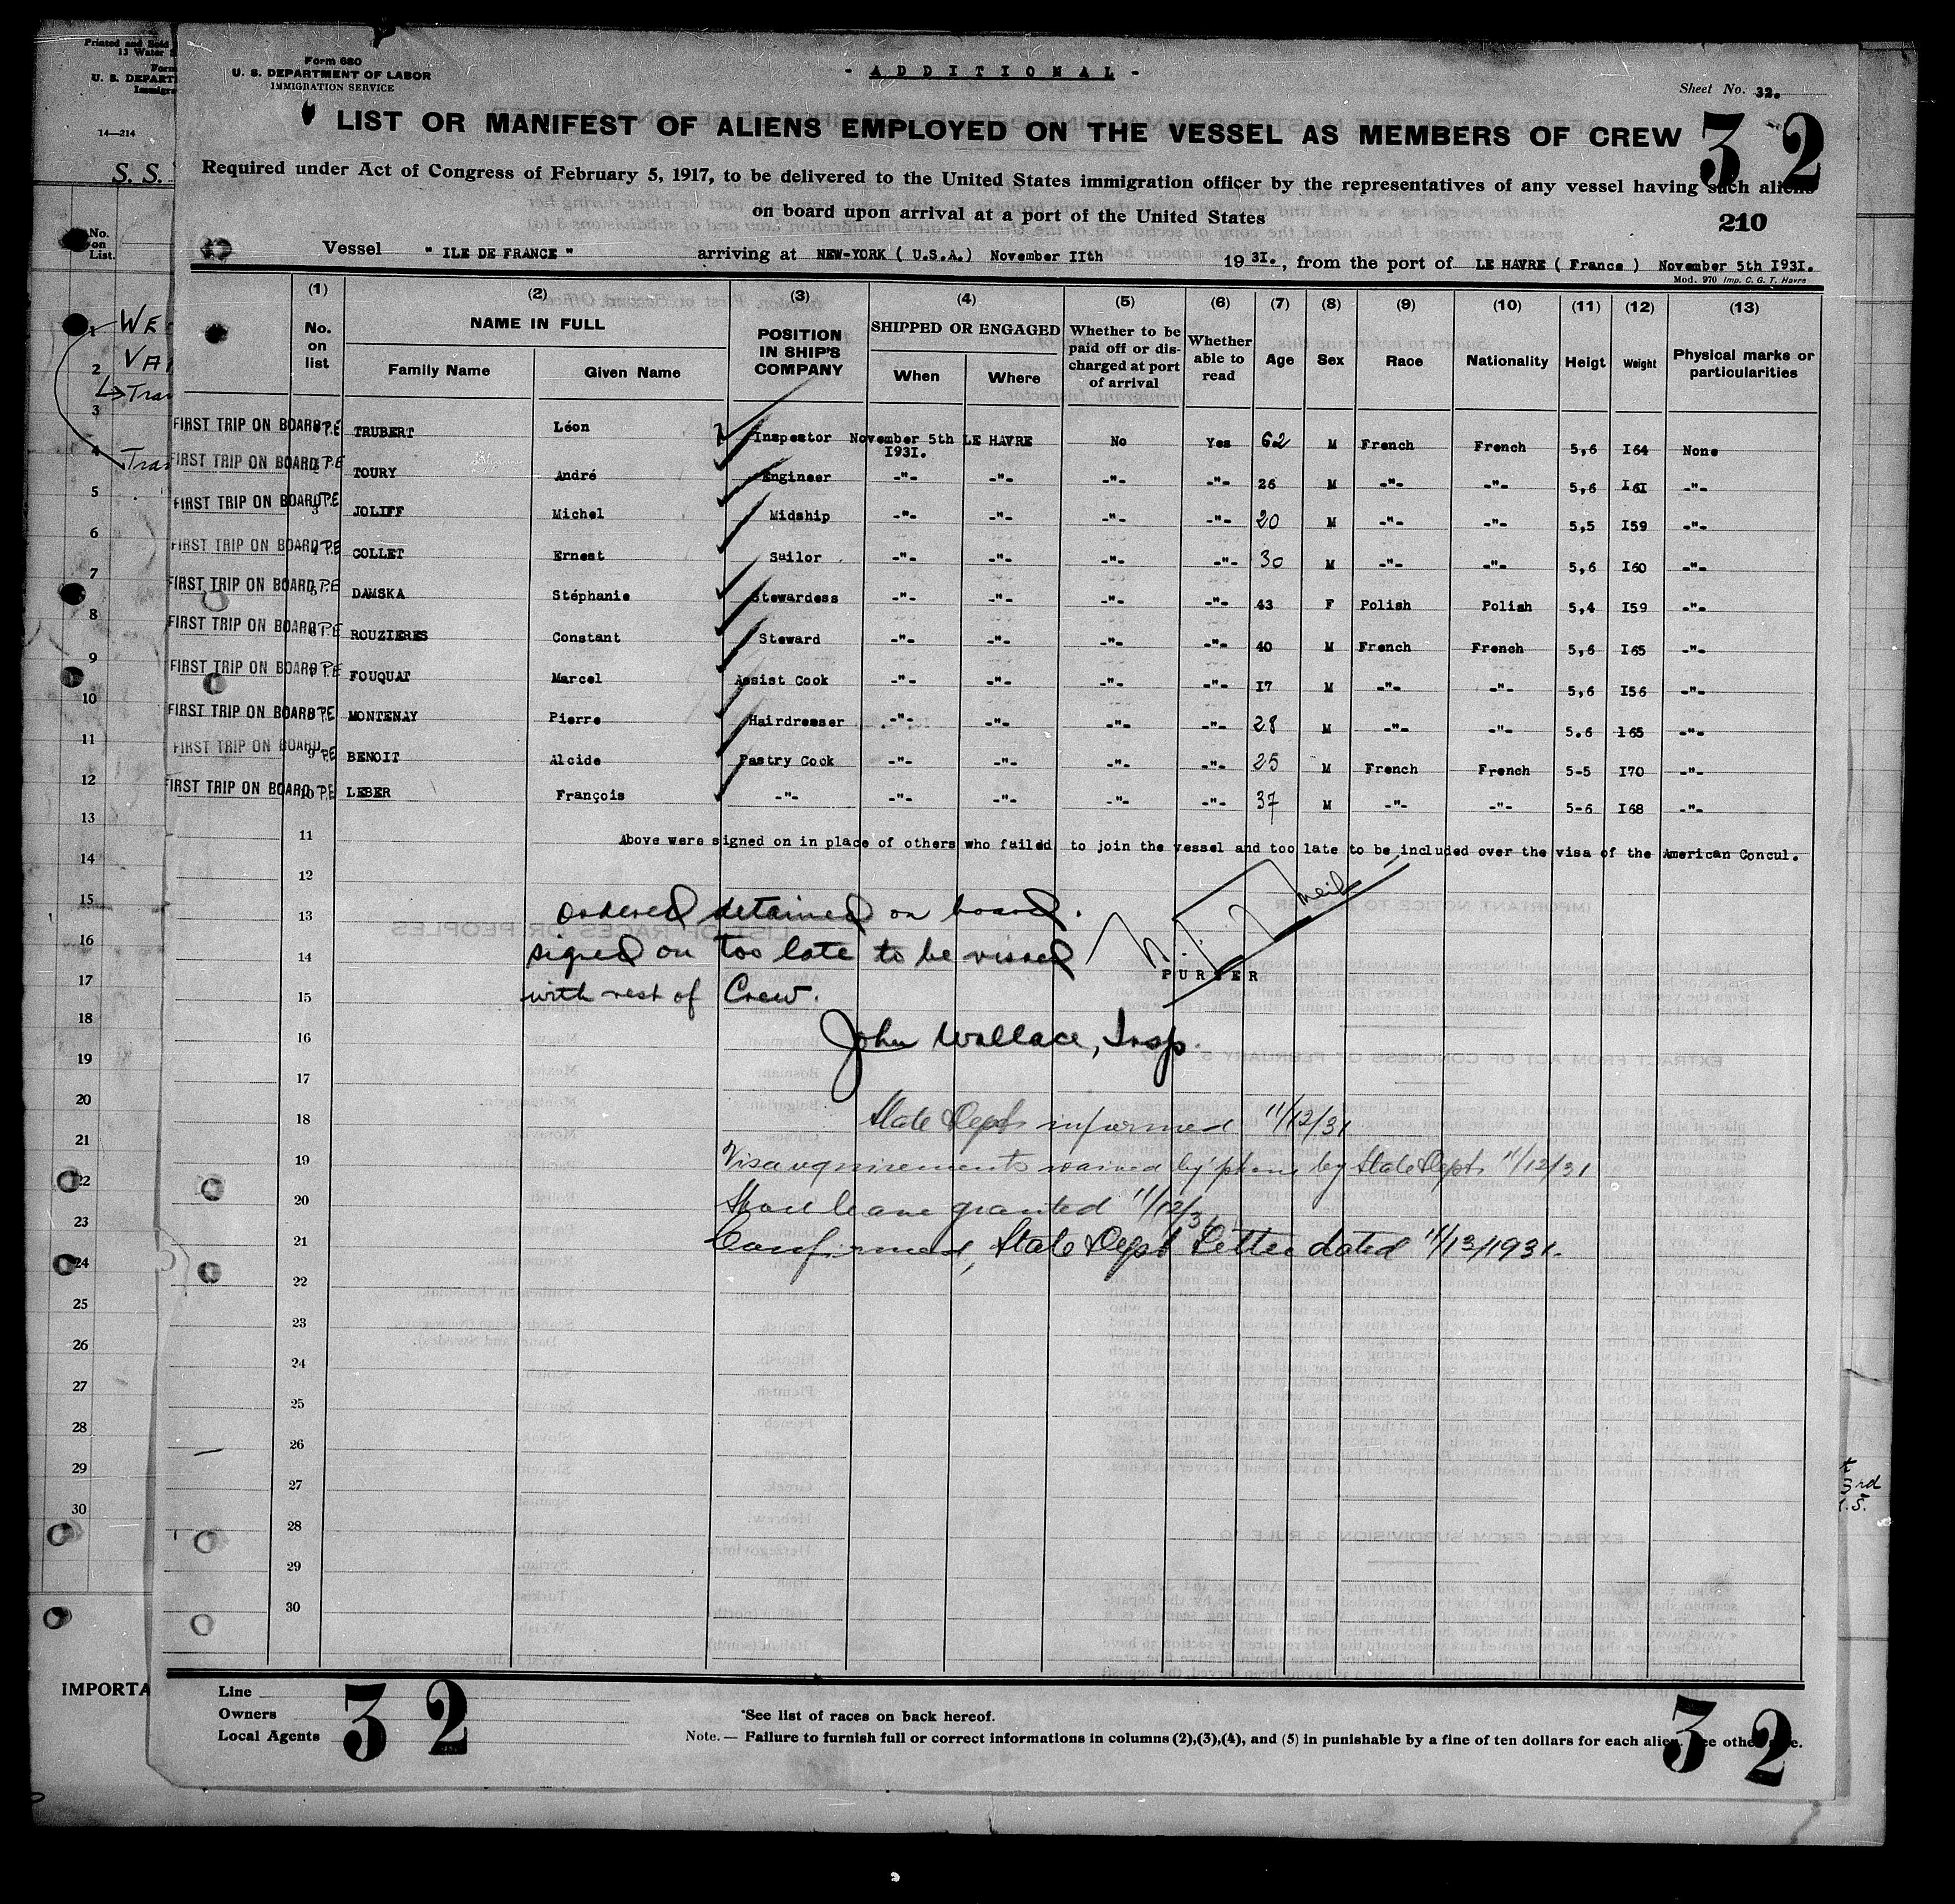 Printed and Sold
13 Water S
Form
U. S. DEPART
Immigra
14—214
S. S.
No.
on
List.
Form 680
U. S. DEPARTMENT OF LABOR
IMMIGRATION SERVICE
- ADDITIONAL -
Sheet No. 32.
LIST OR MANIFEST OF ALIENS EMPLOYED ON THE VESSEL AS MEMBERS OF CREW
32
Required under Act of Congress of February 5, 1917, to be delivered to the United States immigration officer by the representatives of any vessel having such aliens
on board upon arrival at a port of the United States
210
Vessel " ILE DE FRANCE " arriving at NEW-YORK ( U.S.A.) November IIth 19 3I., from the port of LE HAVRE ( France ) November 5th I93I.
Mod. 970 Imp. C. G. T. Havre
(1) (2) (3) (4) (5) (6) (7) (8) (9) (10) (11) (12) (13)
No. on list NAME IN FULL Family Name Given Name POSITION IN SHIP'S COMPANY SHIPPED OR ENGAGED When Where Whether to be paid off or discharged at port of arrival Whether able to read Age Sex Race Nationality Heigt Weight Physical marks or particularities
FIRST TRIP ON BOARD P.E TRUBERT Léon Inspestor November 5th I93I. LE HAVRE No Yes 62 M French French 5,6 I64 None
FIRST TRIP ON BOARD P.E TOURY André Engineer -"- -"- -"- -"- 26 M -"- -"- 5,6 I6I -"-
FIRST TRIP ON BOARD P.E 3 JOLIFF Michel Midship -"- -"- -"- -"- 20 M -"- -"- 5,5 I59 -"-
FIRST TRIP ON BOARD P.E COLLET Ernest Sailor -"- -"- -"- -"- 30 M -"- -"- 5,6 I60 -"-
FIRST TRIP ON BOARD P.E 5 DAMSKA Stéphanie Stewardess -"- -"- -"- -"- 43 F Polish Polish 5,4 I59 -"-
FIRST TRIP ON BOARD P.E 6 ROUZIERES Constant Steward -"- -"- -"- -"- 40 M French French 5,6 I65 -"-
FIRST TRIP ON BOARD P.E FOUQUAT Marcel Assist Cook -"- -"- -"- -"- I7 M -"- -"- 5,6 I56 -"-
FIRST TRIP ON BOARD P.E MONTENAY Pierre Hairdresser -"- -"- -"- -"- 28 M -"- -"- 5.6 I65 -"-
FIRST TRIP ON BOARD P.E 9 BENOIT Alcide Pastry Cook -"- -"- -"- -"- 25 M French French 5-5 I70 -"-
FIRST TRIP ON BOARD P.E 10 LEBER François -"- -"- -"- -"- -"- 37 M -"- -"- 5-6 I68 -"-
11 Above were signed on in place of others who failed to join the vessel and too late to be included over the visa of the American Concul.
12
13 Ordered detained on board.
14 signed on too late to be visaed
PURSER
15 with rest of Crew.
16 John Wallace, Insp.
17
18 State Dept informed 11/12/31
19 Visa requirements waived by phone by State Dept. 11/12/31
20 Shore leave granted 11/12/31
21 Confirmed, State Dept Letter dated 11/13/1931.
22
23
24
25
26
27
28
29
30
Line
Owners
Local Agents
32
*See list of races on back hereof.
Note. — Failure to furnish full or correct informations in columns (2),(3),(4), and (5) in punishable by a fine of ten dollars for each alien. See other side.
32
IMPORTA
3rd